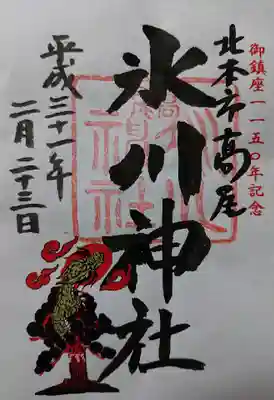 御鎮座一一五〇年記念
北本市高尾
氷川神社
平成三十一年
二月二十三日